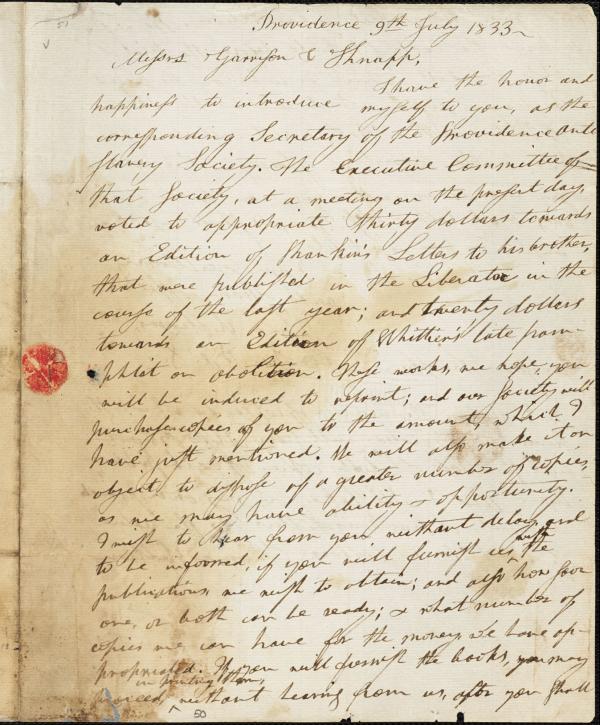 Providence 9th July 1833
Messrs Garrison & Knapp,
I have the honor and
happiness to introduce myself to you, as the
corresponding Secretary of the Providence Anti
Slavery Society. The Executive Committee of
that Society, at a meeting on the present day,
voted to appropriate thirty dollars towards
an Edition of Rankin's Letters to his brother,
that were published in the Liberator in the
course of the last year; and twenty dollars
towards an Edition of Whittier's late pam-
phlet on abolition. These works, we hope, you
will be induced to reprint; and our Society will
purchase copies of you to the amount, which I
have just mentioned. We will also make it an
object to dispose of a greater number of copies,
as we may have ability & opportunity.
I wish to hear from you without delay, and
to be informed, if you will furnish us with the
publications we wish to obtain; and also how soon
one, or both can be ready; & what number of
copies we can have for the money we have ap-
propriated. If you will furnish the books, you may
proceed in printing them, without hearing from us, after you shall
50